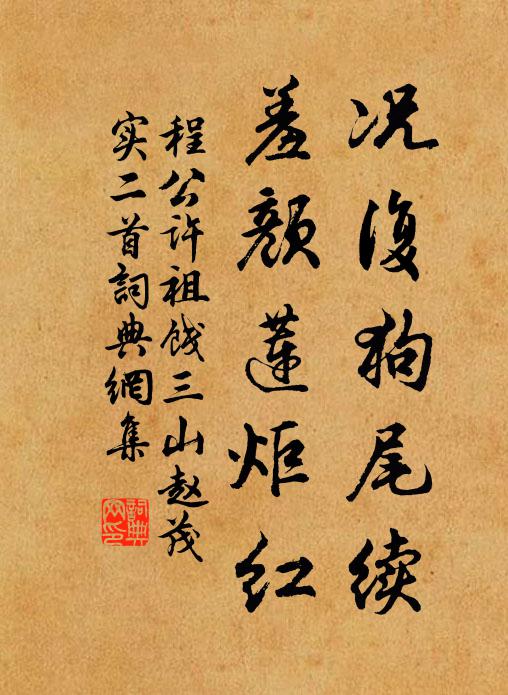 况复狗尾续
羞颜莲炬红
程公许祖饯三山赵茂
实二首詞典網集
詞典
网印